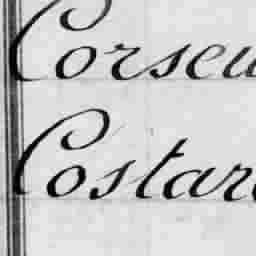 Corseu
Costar